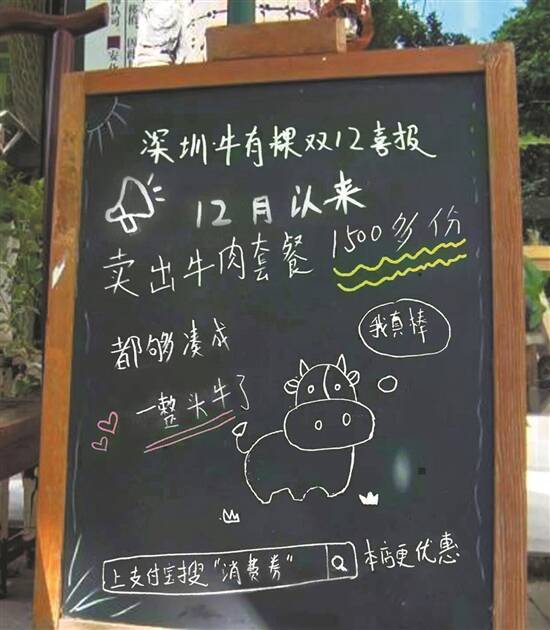 深圳牛有稞双12喜报
12月以来
卖出牛肉套餐 1500多份
我真棒
都够凑成
一整头牛了
上支付宝搜"消费券" 本店更优惠